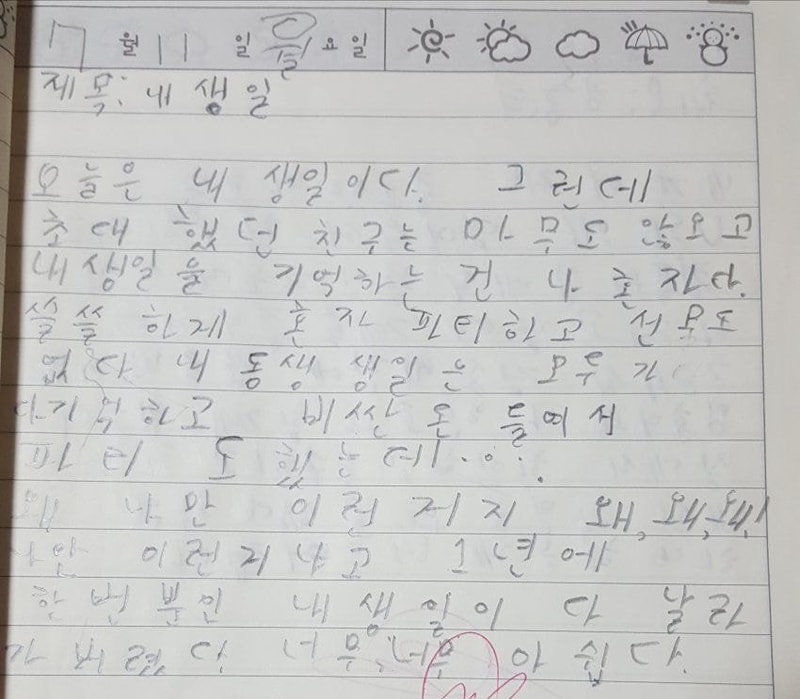 7 월 11 일 월 요일
제목: 내 생일
오늘은 내 생일이다. 그런데
초대 했던 친구는 아무도 않오고
내 생일을 기억하는 건 나 혼자다.
쓸쓸하게 혼자 파티하고 선물도
없다 내 동생 생일은 모두 가
다기억하고 비싼 돈 들여서
파티 도 했는데...
왜 나만 이런 저지 왜, 왜, 왜!
나만 이런지 나고 1년에
한 번뿐인 내 생일이 다 날라
가 버렸다. 너무, 너무 아쉽다.